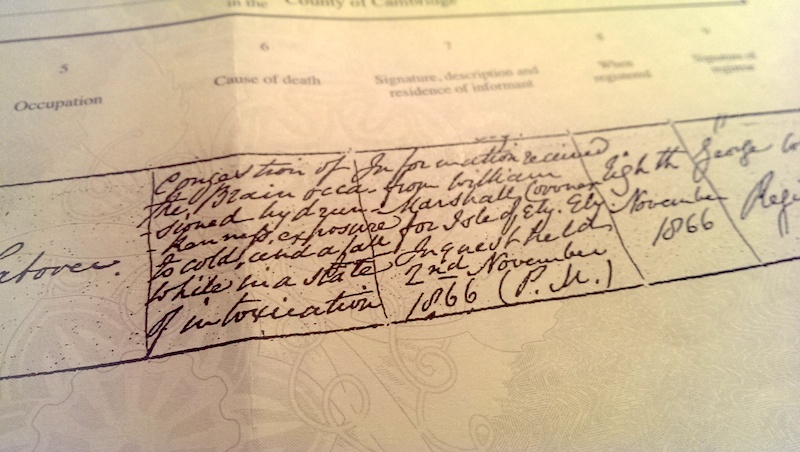 in the County of Cambridge
5 6 7 8 9
Occupation
Cause of death
Signature, description and
residence of informant
When
registered
Signature of
registrar
Labourer.
Congestion of
the Brain occa-
sioned by drun-
kenness, exposure
to cold, and a fall
while in a state
of intoxication
Information received
from William
Marshall Coroner
for Isle of Ely. Ely.
Inquest held
2nd November
1866 (P. M.)
Eighth
November
1866
George
Regi